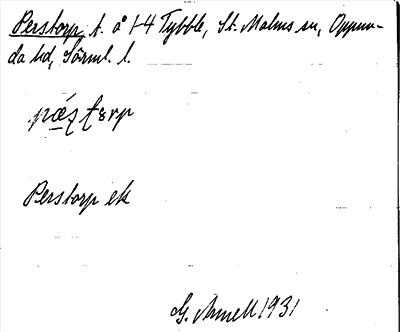 Perstorp t. å 1-4 Tybble, St. Malms sn, Oppun-
da hd, Sörml. l.
Perstorp ek
G. Arnell 1931